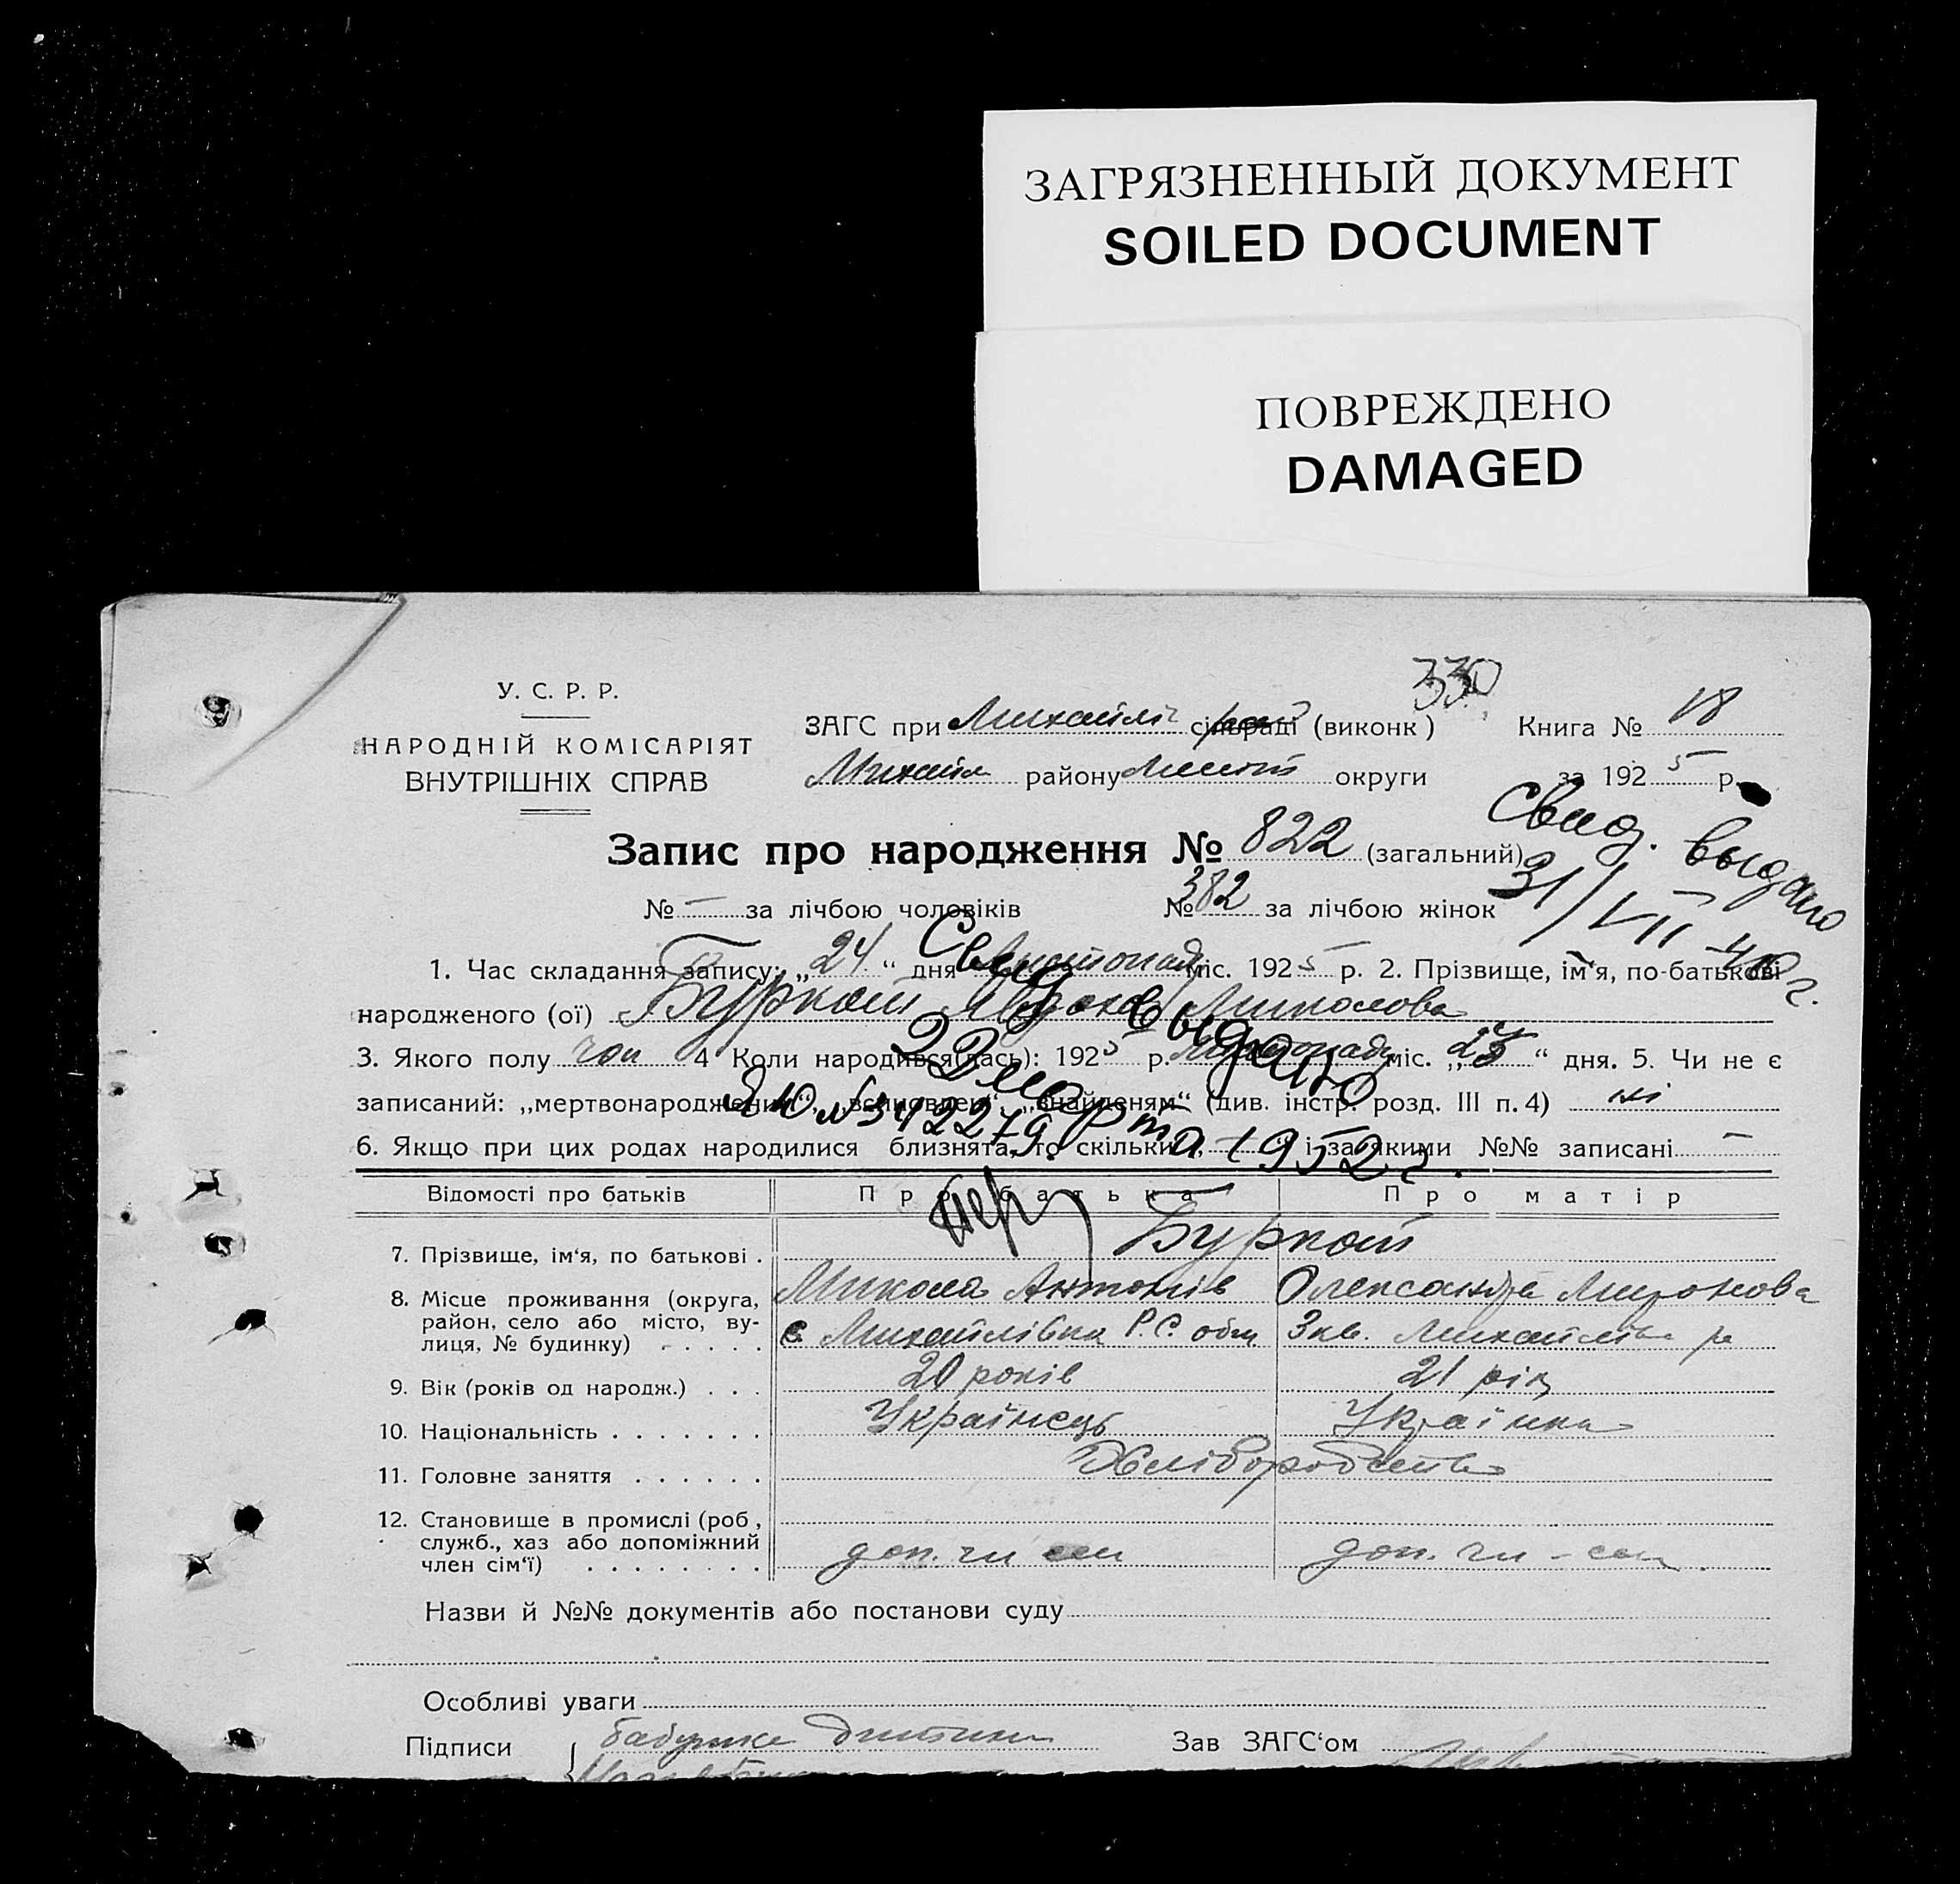 ЗАГРЯЗНЕННЫЙ ДОКУМЕНТ
SOILED DOCUMENT
ПОВРЕЖДЕНО
DAMAGED
330
У. С. Р. Р.
НАРОДНІЙ КОМІСАРІЯТ
ВНУТРІШНІХ СПРАВ
ЗАГС при Михайлі сільраді (виконк) Книга № 18
Михайл району округи за 1925 р.
Свид. выдано
31/VII 40 г.
Запис про народження № 822 (загальний)
№ — за лічбою чоловіків № 382 за лічбою жінок
1. Час складання запису: „24“ дня Листопад міс. 1925 р. 2. Прізвище, ім‘я, по-батькові
народженого (ої) Буркот Миколова
3. Якого полу 4 Коли народився(лась): 1925 р. Листопаду міс. „ “ дня. 5. Чи не є
записаний: „мертвонароджений“, „всиновлен“, „знайденям“ (див. інстр. розд. III п. 4) ні
6. Якщо при цих родах народилися близнята, то скільки — і за якими №№ записані —
Свид выдано
22 марта 1952 г.
ЯЮ №342279
Відомості про батьків Про батька Про матір
7. Прізвище, ім‘я, по батькові . Буркот
Микола Антонів Олександра Миронова
8. Місце проживання (округа,
район, село або місто, ву-
лиця, № будинку) . . . . .
с. Михайлівка Р.С. общ Зкв. Михайлівка
9. Вік (років од народж.) . . . 20 років 21 рік
10. Національність . . . . . . . Українець Українка
11. Головне заняття . . . . . . Хліборобство
12. Становище в промислі (роб,
служб., хаз або допоміжний
член сім‘ї) . . . . . . . .
доп. чл сем доп. чл - сем
Назви й №№ документів або постанови суду
Особливі уваги
Підписи бабушка дитини Зав ЗАГС‘ом